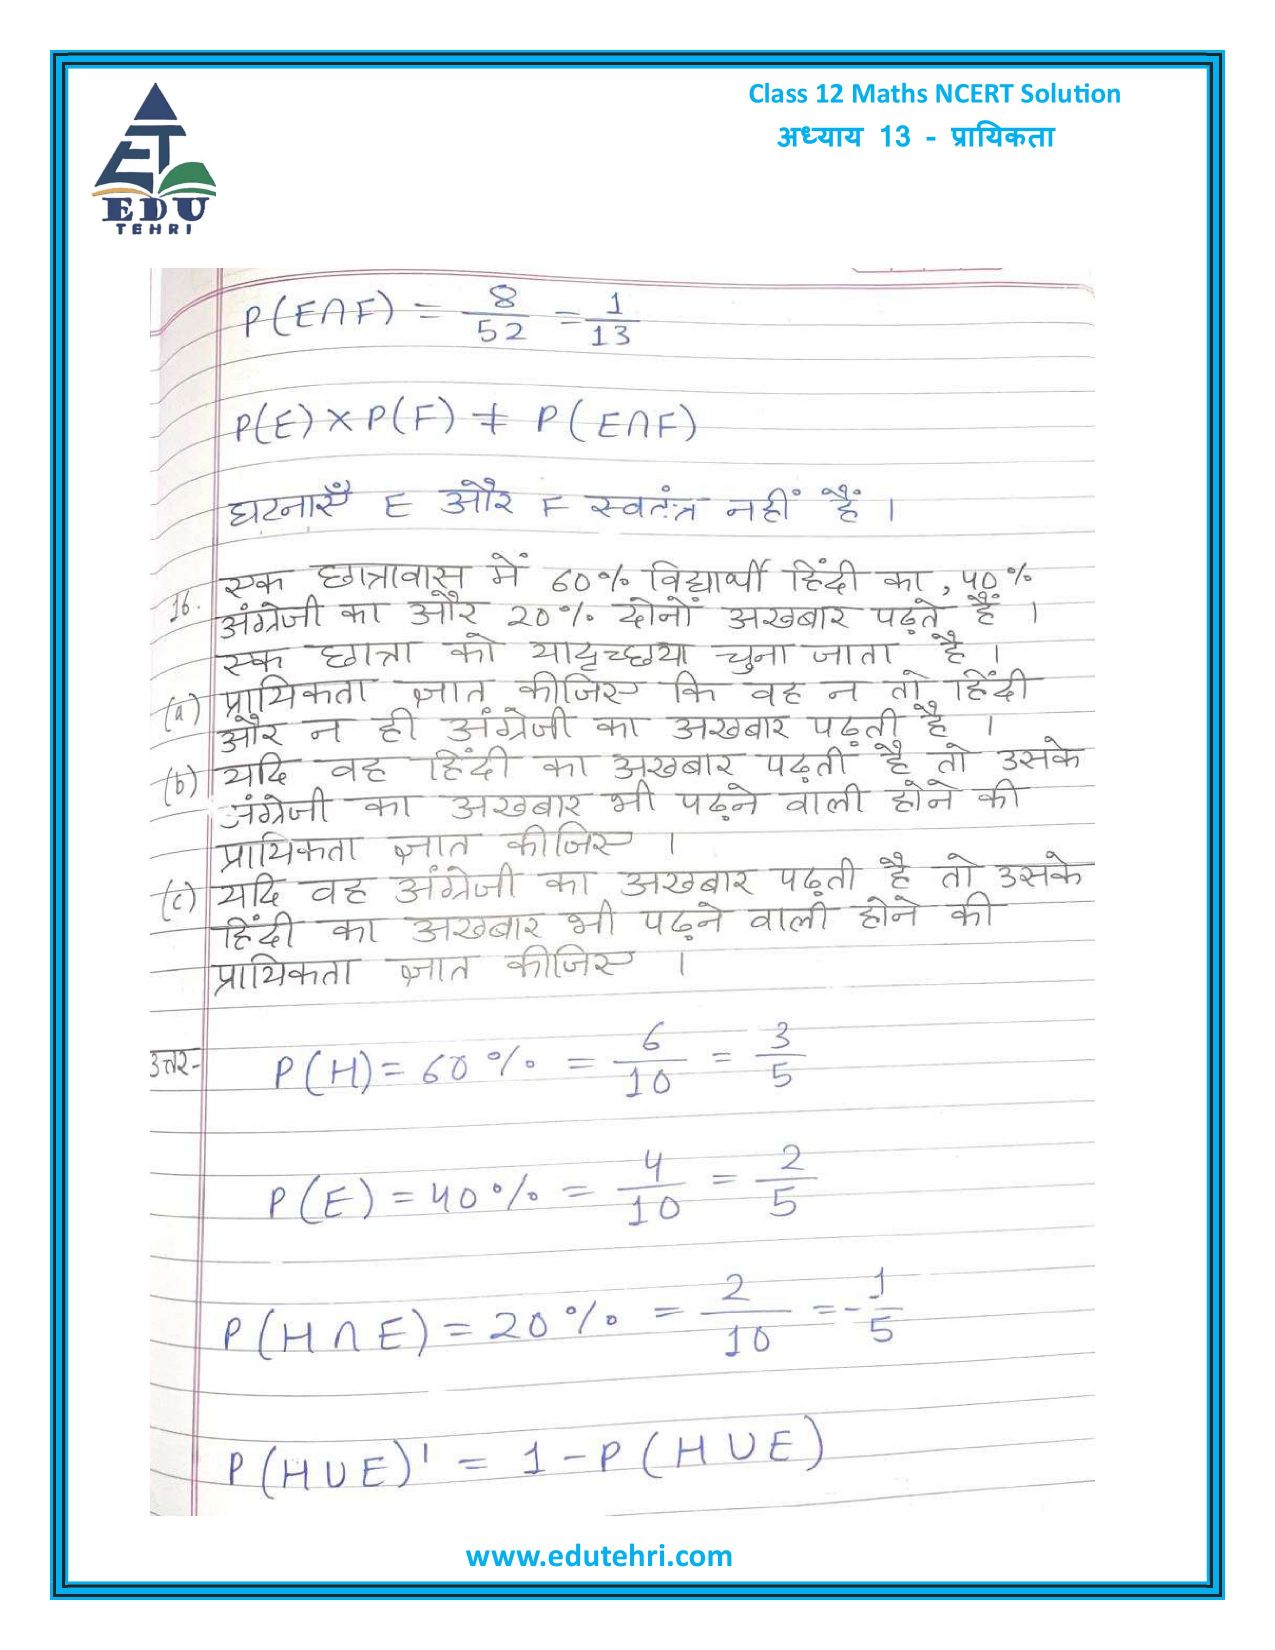 Class 12 Maths NCERT Solution
अध्याय 13 - प्रायिकता
EDU
TEHRI
P(E∩F) = 8/52 = 1/13
P(E) × P(F) ≠ P(E∩F)
घटनाएँ E और F स्वतंत्र नहीं हैं ।
16. एक छात्रावास में 60% विद्यार्थी हिंदी का, 40%
अंग्रेजी का और 20% दोनों अखबार पढ़ते हैं ।
एक छात्रा को यादृच्छया चुना जाता है ।
(a) प्रायिकता ज्ञात कीजिए कि वह न तो हिंदी
और न ही अंग्रेजी का अखबार पढ़ती है ।
(b) यदि वह हिंदी का अखबार पढ़ती है तो उसके
अंग्रेजी का अखबार भी पढ़ने वाली होने की
प्रायिकता ज्ञात कीजिए ।
(c) यदि वह अंग्रेजी का अखबार पढ़ती है तो उसके
हिंदी का अखबार भी पढ़ने वाली होने की
प्रायिकता ज्ञात कीजिए ।
उत्तर- P(H) = 60% = 6/10 = 3/5
P(E) = 40% = 4/10 = 2/5
P(H∩E) = 20% = 2/10 = - 1/5
P(H∪E)' = 1 - P(H∪E)
www.edutehri.com